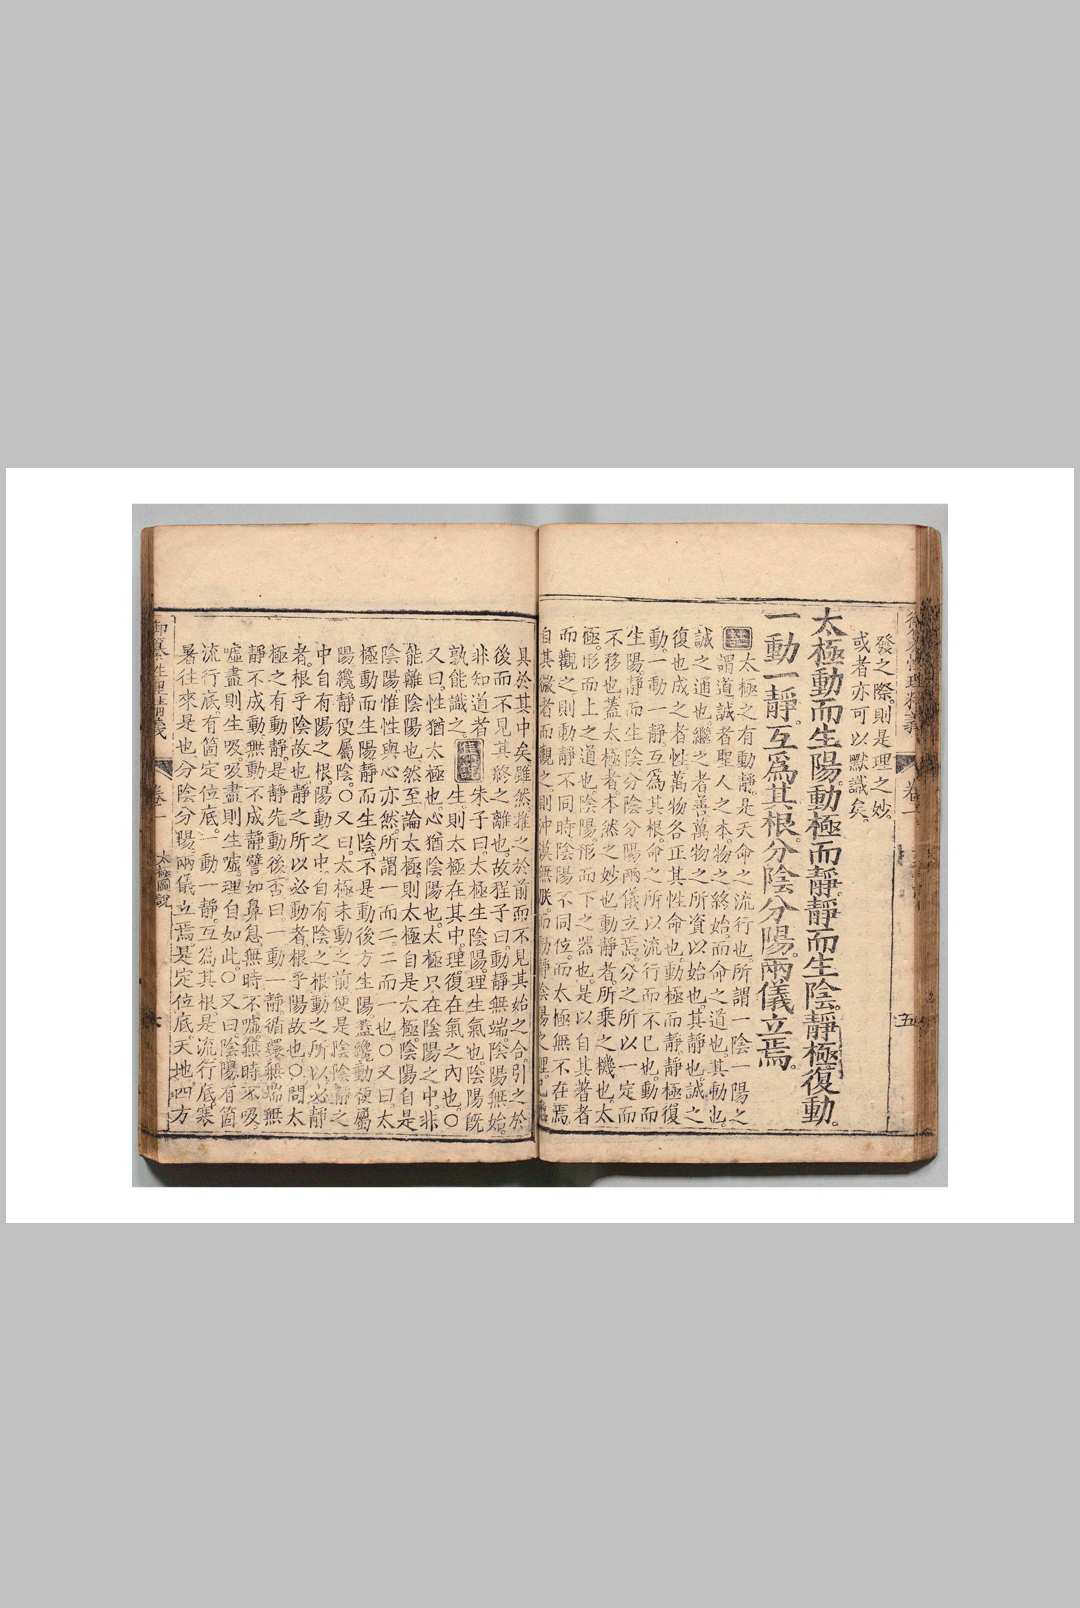 發之際。則是理之妙。
或者亦可以默識矣。
太極動而生陽。動極而靜。靜而生陰。靜極復動。
一動一靜。互爲其根。分陰分陽。兩儀立焉。
太極之有動靜。是天命之流行也。所謂一陰一陽之
謂道。誠者。聖人之本。物之終始。而命之道也。其動也。
誠之通也。繼之者善。萬物之所資以始也。其靜也。誠之
復也。成之者性。萬物各正其性命也。動極而靜。靜極復
動。一動一靜。互爲其根。命之所以流行而不已也。動而
生陽。靜而生陰。分陰分陽。兩儀立焉。分之所以一定而
不移也。蓋太極者。本然之妙也。動靜者。所乘之機也。太
極。形而上之道也。陰陽。形而下之器也。是以自其著者
而觀之。則動靜不同時。陰陽不同位。而太極無不在焉。
自其微者而觀之。則沖漠無朕。而動靜陰陽之理。已悉
卷一
五
具於其中矣。雖然。推之於前。而不見其始之合。引之於
後。而不見其終之離也。故程子曰。動靜無端。陰陽無始。
非知道者。
孰能識之。
朱子曰。太極生陰陽。理生氣也。陰陽旣
生。則太極在其中。理復在氣之內也。〇
又曰。性猶太極也。心猶陰陽也。太極只在陰陽之中。非
能離陰陽也。然至論太極。則太極自是太極。陰陽自是
陰陽。惟性與心亦然。所謂一而二。二而一也。〇又曰。太
極動而生陽。靜而生陰。不是動後方生陽。蓋纔動便屬
陽。纔靜便屬陰。〇又曰。太極未動之前便是陰。陰靜之
中。自有陽之根。陽動之中。自有陰之根。動之所以必靜
者。根乎陰故也。靜之所以必動者。根乎陽故也。〇問太
極之有動靜。是靜先動後否。曰。一動一靜。循環無端。無
靜不成動。無動不成靜。譬如鼻息。無時不噓。無時不吸。
噓盡則生吸。吸盡則生噓。理自如此。〇又曰。陰陽有箇
流行底。有箇定位底。一動一靜。互爲其根。是流行底。寒
暑往來是也。分陰分陽。兩儀立焉。是定位底。天地四方
卷一
太極圖說
六